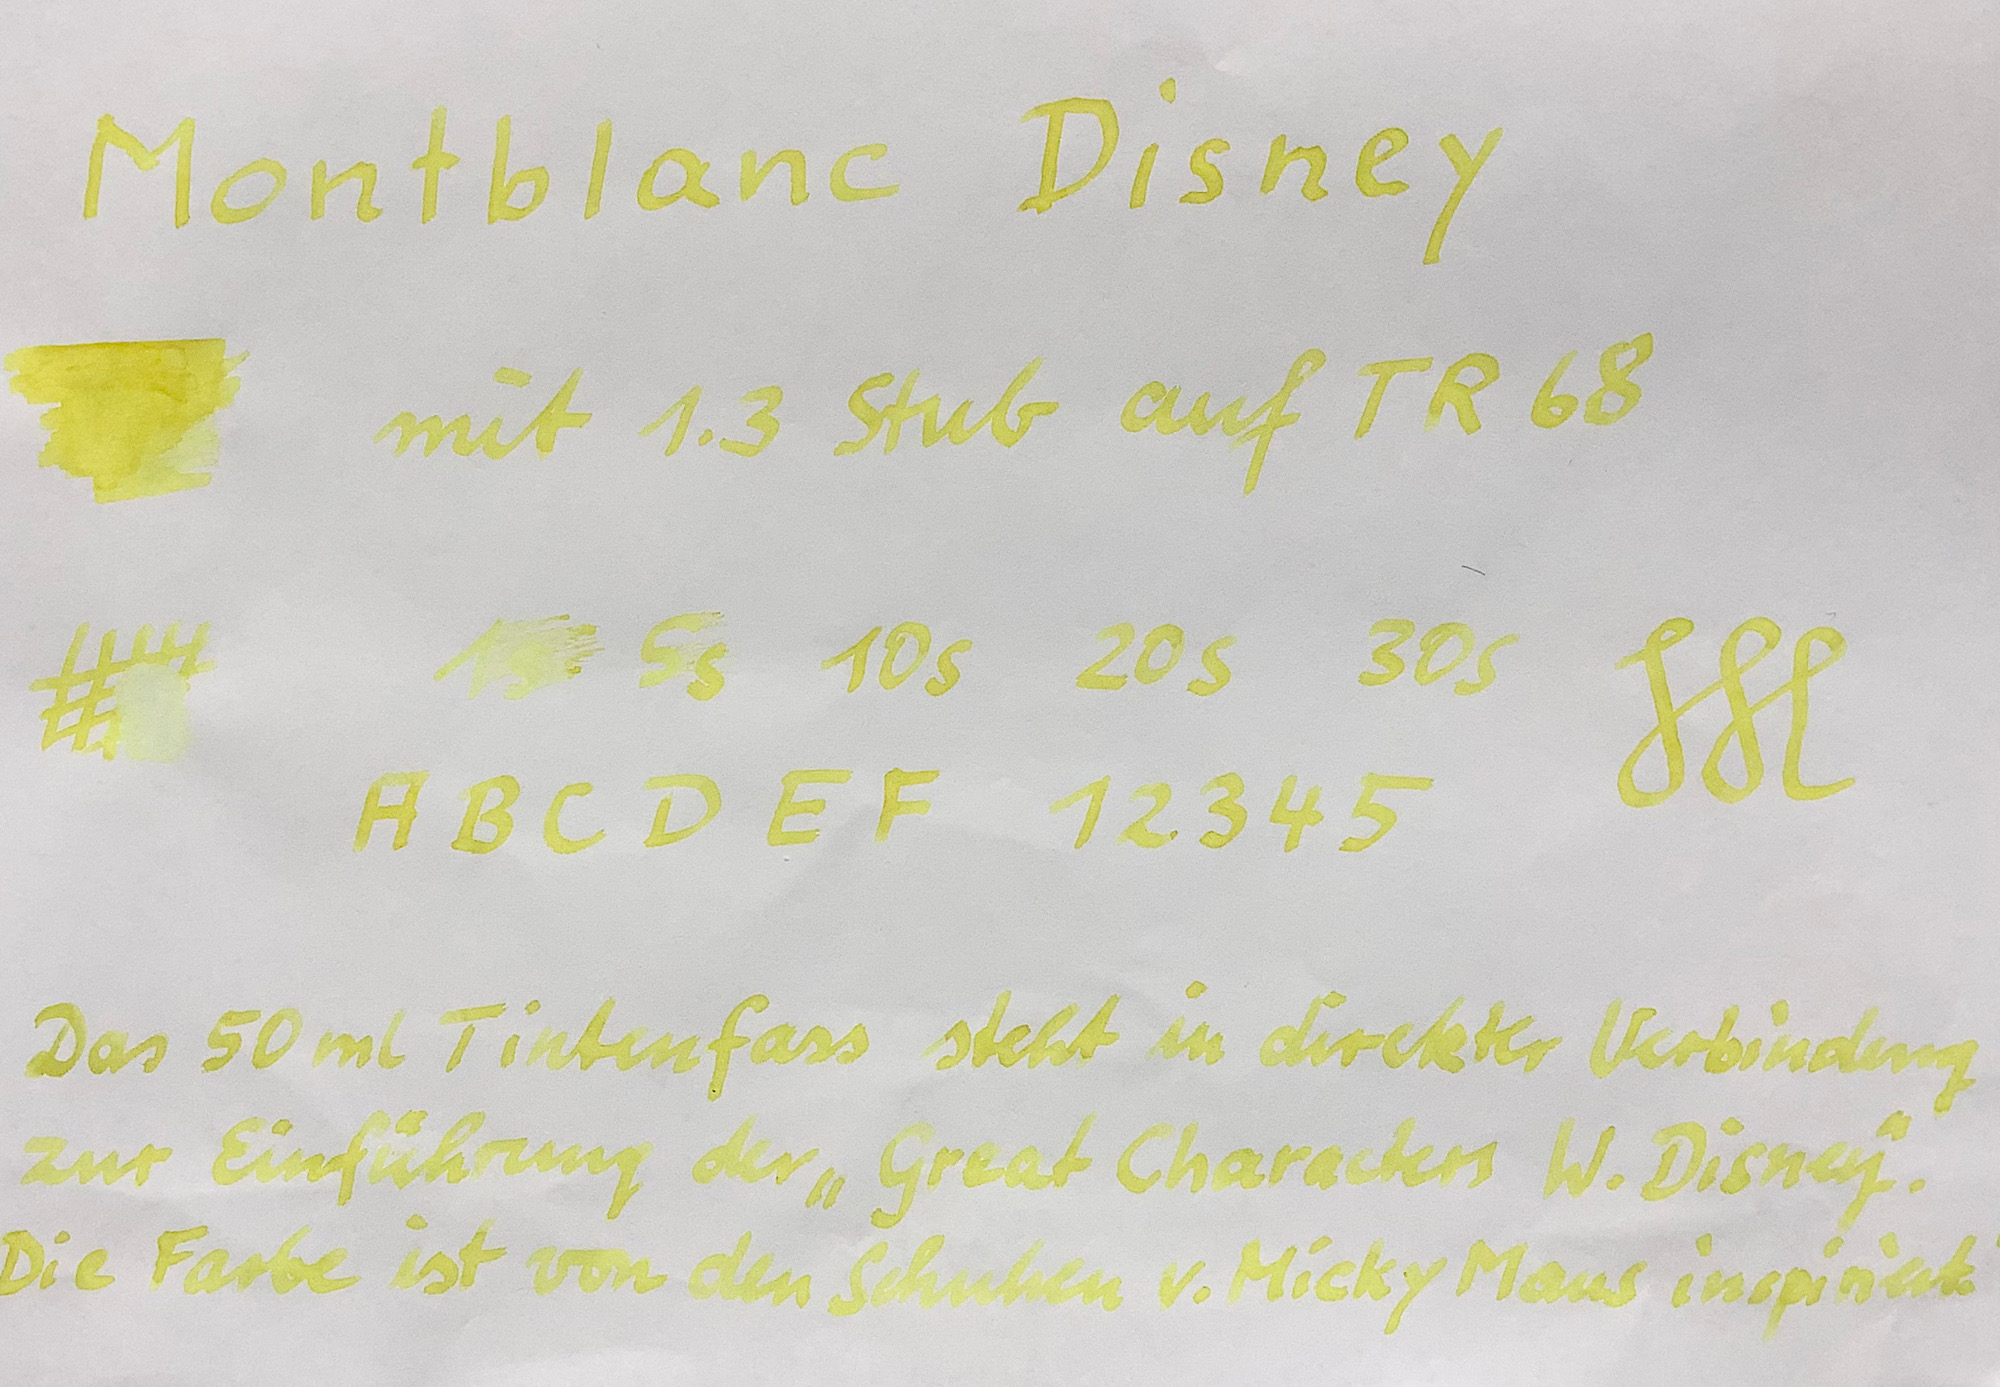 Montblanc Disney
mit 1.3 Stub auf TR 68
1s 5s 10s 20s 30s
A B C D E F 1 2 3 4 5
Das 50 ml Tintenfass steht in direkter Verbindung
zur Einführung der „Great Characters W. Disney".
Die Farbe ist von den Schuhen v. Micky Maus inspiriert